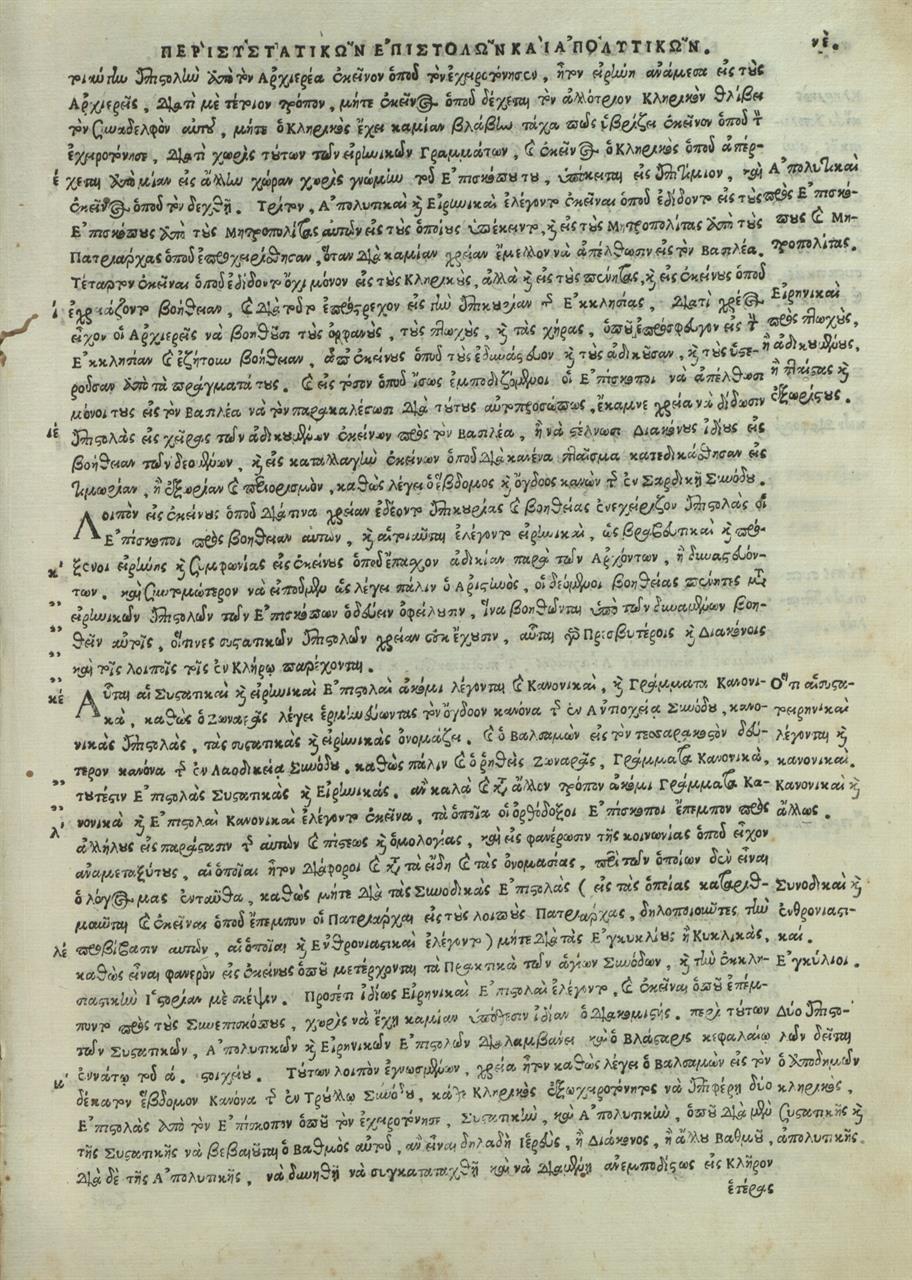 ΠΕΡΙ ΣΥΣΤΑΤΙΚΩΝ ΕΠΙΣΤΟΛΩΝ ΚΑΙ ΑΠΟΛΥΤΙΚΩΝ. νε.
Ἐπιστολὴν ἀπὸ τὸν Ἀρχιερέα ἐκεῖνον ὁποῦ τὸν ἐχειροτόνησεν, ἦτον εἰρήνη ἀνάμεσα εἰς τοὺς
Ἀρχιερεῖς, Διατὶ μὲ τέτοιον τρόπον, μήτε ἐκεῖνος ὁποῦ δέχεται τὸν ἀλλότριον Κληρικὸν θλίβει
τὸν Συναδελφὸν αὐτοῦ, μήτε ὁ Κληρικὸς ἔχει καμίαν βλάβην τάχα πῶς ὑβρίζει ἐκεῖνον ὁποῦ τὸν
ἐχειροτόνησε, Διατὶ χωρὶς τούτων τῶν εἰρηνικῶν Γραμμάτων, καὶ ἐκεῖνος ὁ Κληρικὸς ὁποῦ ἀπέρ-
έ χεται ἀπὸ μίαν εἰς ἄλλην χώραν χωρὶς γνώμην τοῦ Ἐπισκόπου του, ὑπόκειται εἰς Ἐπιτίμιον, καὶ
ἐκεῖνος ὁποῦ τὸν δεχθῇ. Τρίτον, Ἀπολυτικαὶ καὶ Εἰρηνικαὶ ἐλέγοντο ἐκεῖναι ὁποῦ ἐδίδοντο εἰς τοὺς
Ἐπισκόπους ἀπὸ τοὺς Μητροπολίτας αὐτῶν εἰς τοὺς ὁποίους ὑπέκειντο, καὶ εἰς τοὺς Μητροπολίτας ἀπὸ τοὺς
Πατριάρχας ὁποῦ ἐπροχειρίσθησαν, ὅταν διὰ καμίαν χρείαν ἔμελλον νὰ ἀπέλθωσιν εἰς τὸν Βασιλέα.
Ἀπολυτικαὶ
πρὸς Ἐπισκό-
πους καὶ Μη-
τροπολίτας.
Τέταρτον ἐκεῖναι ὁποῦ ἐδίδοντο ὄχι μόνον εἰς τοὺς Κληρικοὺς, ἀλλὰ καὶ εἰς τοὺς πένητας, καὶ εἰς ἐκείνους ὁποῦ
ί ἐχρειάζοντο βοήθειαν, καὶ διὰ τοῦτο ἐπρόστρεχον εἰς τὴν ἐπικουρίαν τῆς Ἐκκλησίας, Διατὶ χρέος
εἶχον οἱ Ἀρχιερεῖς νὰ βοηθοῦσι τοὺς ὀρφανοὺς, τοὺς πτωχοὺς, καὶ τὰς χήρας, ὁποῦ ἐπροσφεύγον εἰς τὴν
Ἐκκλησίαν καὶ ἐζήτουν βοήθειαν, ἀπ' ἐκείνους ὁποῦ τοὺς ἐδυνάστευον καὶ τοὺς ἀδικοῦσαν, καὶ τοὺς ὑστε-
ροῦσαν ἀπὸ τὰ πράγματά τους. καὶ εἰς τόσον ὁποῦ ἴσως ἐμποδιζόμενοι οἱ Ἐπίσκοποι νὰ ἀπέλθωσι
μόνοι τους εἰς τὸν Βασιλέα νὰ τὸν παρακαλέσωσι διὰ τούτους αὐτοπροσώπως, ἔκαμνε χρεία νὰ δίδωσιν
Εἰρηνικαὶ
πρὸς πτωχοὺς,
ἢ ἀδικουμένους,
ἢ πλαίσας καὶ
ἐξωρίστους.
ιέ Ἐπιστολὰς εἰς χεῖρας τῶν ἀδικουμένων ἐκείνων πρὸς τὸν Βασιλέα, ἢ νὰ στέλνωσι Διακόνους ἰδίους εἰς
βοήθειαν τῶν δεομένων, καὶ εἰς καταλλαγὴν ἐκείνων ὁποῦ διὰ κανένα πταῖσμα κατεδικάσθησαν εἰς
τιμωρίαν, ἢ ἐξωρίαν καὶ περιορισμὸν, καθὼς λέγει ὁ ἕβδομος καὶ ὄγδοος κανὼν τῆς ἐν Σαρδικῇ Συνόδου.
Λοιπὸν εἰς ἐκείνους ὁποῦ διά τινα χρείαν ἐδέοντο ἐπικουρίας καὶ βοηθείας ἐνεχείριζον Ἐπιστολὰς οἱ
Ἐπίσκοποι πρὸς βοήθειαν αὐτῶν, καὶ αἱ τοιαῦται ἐλέγοντο εἰρηνικαὶ, ὡς βραβευτικαὶ καὶ πρό-
κ' ξενοι εἰρήνης καὶ Συμφωνίας εἰς ἐκείνους ὁποῦ ἔπασχον ἀδικίαν παρὰ τῶν Ἀρχόντων, ἢ δυναστευόν-
των. καὶ Συντομώτερον νὰ εἰποῦμεν ὡς λέγει πάλιν ὁ Ἀριστινὸς, οἱ δεόμενοι βοηθείας πένητες μετ'
εἰρηνικῶν Ἐπιστολῶν τῶν Ἐπισκόπων ὁδεύειν ὀφείλουσιν, ἵνα βοηθῶνται ὑπὸ τῶν δυναμένων βοη-
θεῖν αὐτοῖς, οἵτινες συστατικῶν Ἐπιστολῶν χρείαν οὐκ ἔχουσιν, αὗται γὰρ Πρεσβυτέροις καὶ Διακόνοις
καὶ τοῖς λοιποῖς τοῖς ἐν Κλήρῳ παρέχονται.
κέ Αὗται αἱ Συστατικαὶ καὶ εἰρηνικαὶ Ἐπιστολαὶ ἀκόμι λέγονται καὶ Κανονικαὶ, καὶ Γράμματα Κανονι-
κὰ, καθὼς ὁ Ζωναρᾶς λέγει ἑρμηνεύωντας τὸν ὄγδοον κανόνα τῆς ἐν Ἀντιοχείᾳ Συνόδου, κανο-
νικὰς Ἐπιστολὰς, τὰς συστατικὰς καὶ εἰρηνικὰς ὀνομάζει. καὶ ὁ Βαλσαμὼν εἰς τὸν τεσσαρακοστὸν δεύ-
τερον κανόνα τῆς ἐν Λαοδικείᾳ Συνόδου. καθὼς πάλιν καὶ ὁ ῥηθεὶς Ζωναρᾶς, Γράμματα Κανονικὰ,
Ὅτι αἱ συστα-
τειρηνικαὶ
λέγονται καὶ
κανονικαί.
τουτέστιν Ἐπιστολὰς Συστατικὰς καὶ Εἰρηνικάς. ἂν καλὰ καὶ κατ' ἄλλον τρόπον ἀκόμι Γράμματα Κα-
λ' νονικὰ καὶ Ἐπιστολαὶ Κανονικαὶ ἐλέγοντο ἐκεῖνα, τὰ ὁποῖα οἱ ὀρθόδοξοι Ἐπίσκοποι ἔπεμπον πρὸς
Κανονικαὶ καὶ
ἄλλως.
ἀλλήλους εἰς παράστασιν τῆς αὐτῶν πίστεως καὶ ὁμολογίας, καὶ εἰς φανέρωσιν τῆς κοινωνίας ὁποῦ εἶχον
ἀναμεταξύ τους, αἱ ὁποῖαι ἦτον διάφοροι καὶ κατὰ τὰ εἴδη καὶ τὰς ὀνομασίας, περὶ τῶν ὁποίων δὲν εἶναι
ὁ λόγος μας ἐνταῦθα, καθὼς μήτε διὰ τὰς Συνοδικὰς Ἐπιστολὰς (εἰς τὰς ὁποίας καταριθ-
μοῦνται καὶ ἐκεῖναι ὁποῦ ἔπεμπον οἱ Πατριάρχαι εἰς τοὺς λοιποὺς Πατριάρχας, δηλοποιοῦντες τὴν
λέ προβίβασιν αὐτῶν, αἱ ὁποῖαι καὶ Ἐνθρονιαστικαὶ ἐλέγοντο) μήτε διὰ τὰς Ἐγκυκλίους ἢ Κυκλικὰς,
καθὼς εἶναι φανερὸν εἰς ἐκείνους ὁποῦ μετέρχονται τὰ Πρακτικὰ τῶν ἁγίων Συνόδων, καὶ τὴν ἐκκλη-
Συνοδικαὶ καὶ
ἐνθρονιαστι-
καί.
Ἐγκύκλιοι.
σιαστικὴν Ἱστορίαν μὲ σκέψιν. Προσέτι ἰδίως Εἰρηνικαὶ Ἐπιστολαὶ ἐλέγοντο, καὶ ἐκεῖναι ὁποῦ ἐπέμ-
ποντο πρὸς τοὺς Συνεπισκόπους, χωρὶς νὰ ἔχῃ καμίαν ὑπόθεσιν ἰδίαν ὁ Διακομιστής. περὶ τούτων
τῶν Συστατικῶν, Ἀπολυτικῶν καὶ Εἰρηνικῶν Ἐπιστολῶν διαλαμβάνει καὶ ὁ Βλάσταρις κεφαλαίῳ
μ' ἐννάτῳ τοῦ ά. στοιχείου. Τούτων λοιπὸν ἐγνωσμένων, χρεία ἦτον καθὼς λέγει ὁ Βαλσαμὼν εἰς τὸν
δέκατον ἕβδομον Κανόνα τῆς ἐν Τρούλλῳ Συνόδου, κάθε Κληρικὸς ἐξωχειροτόνητος νὰ ἐπιφέρῃ δύο
Ἐπιστολὰς ἀπὸ τὸν Ἐπίσκοπον ὁποῦ τὸν ἐχειροτόνησε, Συστατικὴν, καὶ Ἀπολυτικὴν, ὁποῦ διὰ μὲν
τῆς Συστατικῆς νὰ βεβαιοῦται ὁ Βαθμὸς αὐτοῦ, ἂν εἶναι δηλαδὴ Ἱερεὺς, ἢ Διάκονος, ἢ ἄλλου Βαθμοῦ,
Δύο Ἐπιστο-
λῶν δεῖται
ὁ ἀποδημῶν
κληρικὸς,
Συστατικῆς καὶ
ἀπολυτικῆς.
διὰ δὲ τῆς Ἀπολυτικῆς, νὰ δυνηθῇ νὰ συγκαταταχθῇ καὶ νὰ διαμένῃ ἀνεμποδίστως εἰς Κλῆρον
ἑτέρας